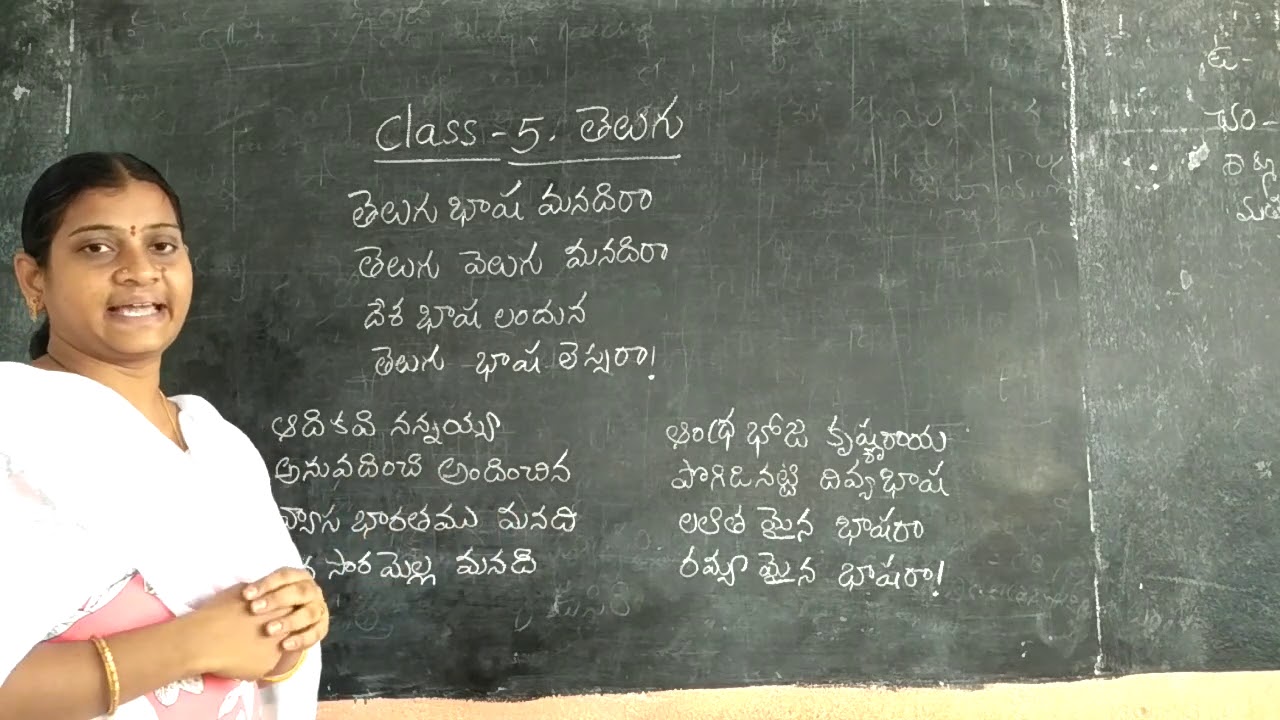 Class - 5. తెలుగు
తెలుగు భాష మనదిరా
తెలుగు వెలుగు మనదిరా
దేశ భాష లందున
తెలుగు భాష లెస్సరా!
ఆది కవి నన్నయ్య
అనువదించి అందించిన
భారతము మనది
సారమెల్ల మనది
ఆంధ్ర భోజ కృష్ణరాయ
పొగిడినట్టి దివ్యభాష
లలిత మైన భాషరా
రమ్యా మైన భాషరా!